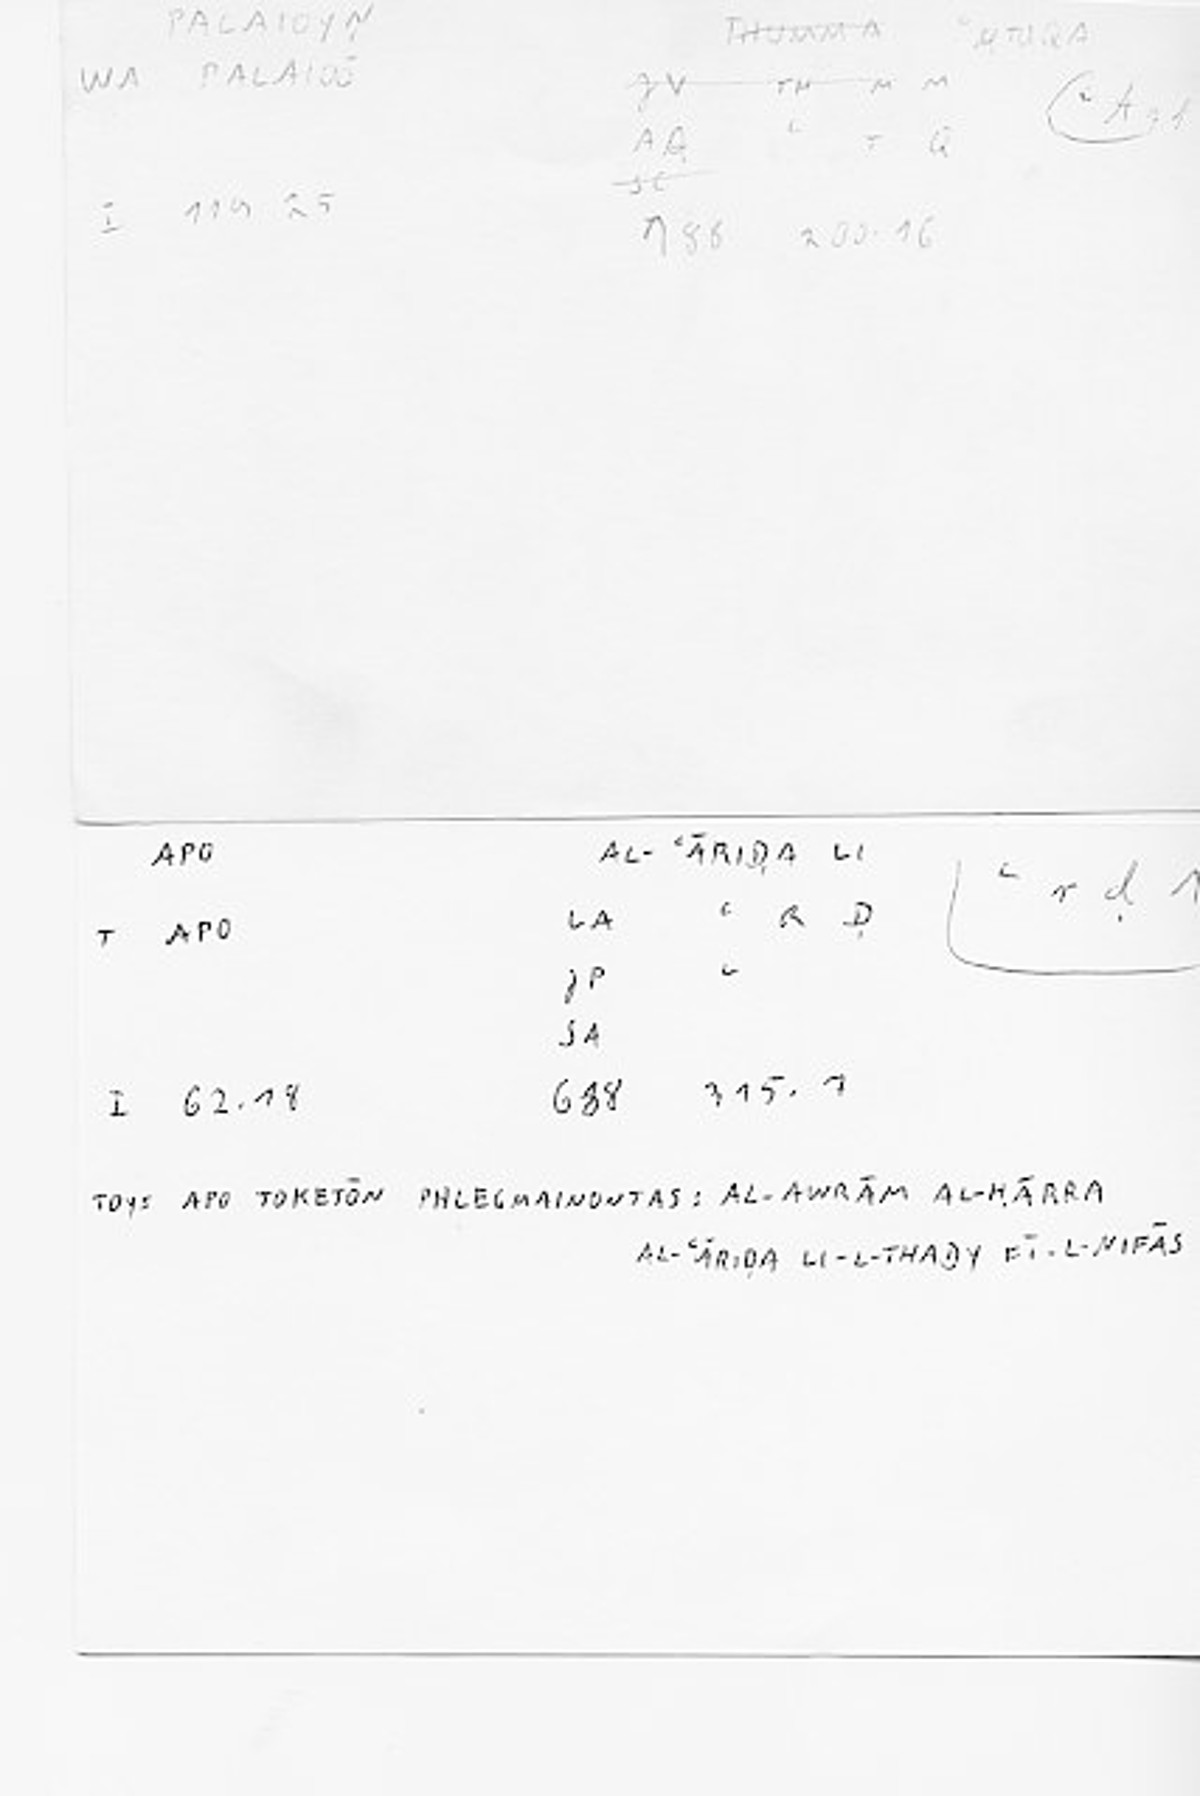 PALAIOYN THUMMA ʿATUQA
WA PALAIOŌ JV TH M M
AQ ʿ T Q
SC
I 114 25 788 200.16
APO AL-ʿĀRIḌA LI
T APO LA ʿ R Ḍ ʿ r ḍ 1
JP ʿ
SA
I 62.18 688 315.7
TOYS APO TOKETŌN PHLEGMAINONTAS: AL-AWRĀM AL-ḤĀRRA
AL-ʿĀRIḌA LI-L-THADY FĪ-L-NIFĀS